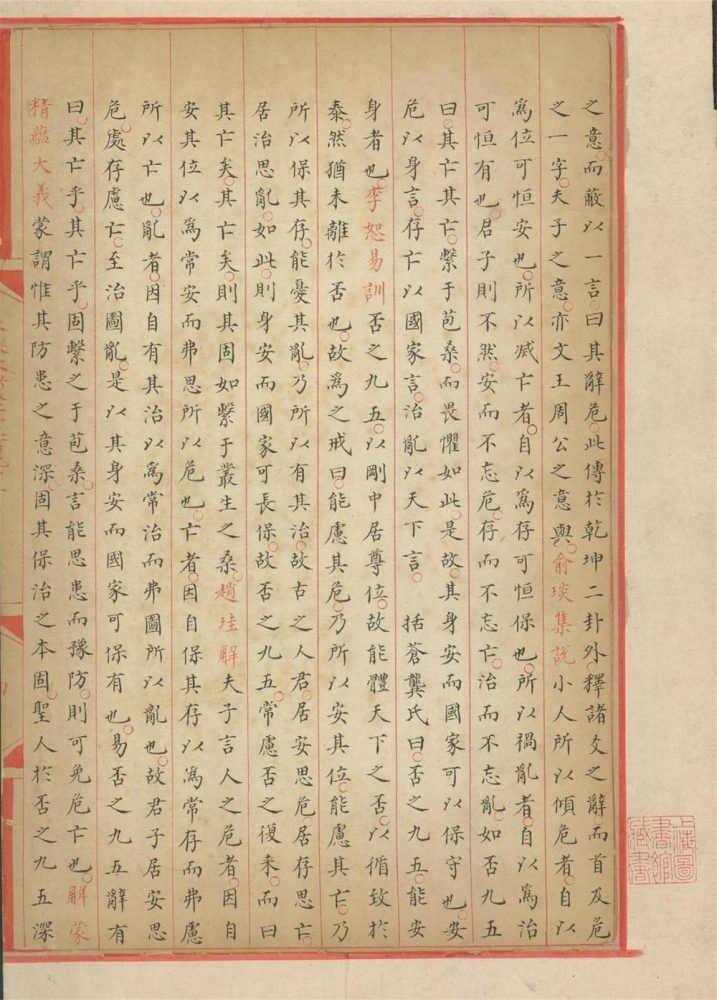 之意而蔽以一言曰其辭危此傳於乾坤二卦外釋諸爻之辭而首及危
之一字夫子之意亦文王周公之意輿俞琰集説小人所以傾危者自以
爲位可恒安也所以滅亡者自以爲存可恒保也所以禍亂者自以爲治
可恒有也君子則不然安而不忘危存而不忘亡治而不忘亂如否九五
曰其亡其亡繫于苞桑而畏懼如此是故其身安而國家可以保守也安
危以身言存亡以國家言治亂以天下言 括蒼龔氏曰否之九五能安
身者也李恕易訓否之九五以剛中居尊位故能體天下之否以循致於
泰然猶未離於否也故爲之戒曰能慮其危乃所以安其位能慮其亡乃
所以保其存能憂其亂乃所以有其治故古之人君居安思危居存思亡
居治思亂如此則身安而國家可長保故否之九五常慮否之復來而曰
其亡矣其亡矣則其固如繫于叢生之桑趙珪解夫子言人之危者因自
安其位以爲常安而弗思所以危也亡者因自保其存以爲常存而弗慮
所以亡也亂者因自有其治以爲常治而弗圖所以亂也故君子居安思
危處存慮亡至治圖亂是以其身安而國家可保有也易否之九五辭有
曰其亡乎其亡乎固繫之于苞桑言能思患而豫防則可免危亡也解蒙
精藴大義蒙謂惟其防患之意深固其保治之本固聖人於否之九五深
上海圖
書館
藏書